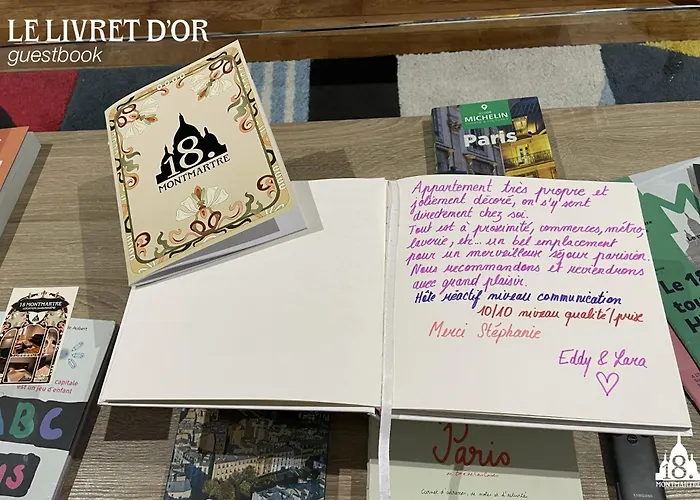 LE LIVRET D'OR
guestbook
18.
MONTMARTRE
MICHELIN
Paris
Appartement très propre et
joliement décoré, on s'y sent
directement chez soi.
Tout est à proximité, commerces, métro,
laverie, etc... un bel emplacement
pour un merveilleux séjour parisien.
Nous recommandons et reviendrons
avec grand plaisir.
Hôte réactif niveau communication
10/10 niveau qualité/prix
Merci Stéphanie
Eddy & Lara
18 MONTMARTRE
capitale
est un jeu d'enfant
ABC
Paris
18.
MONTMARTRE